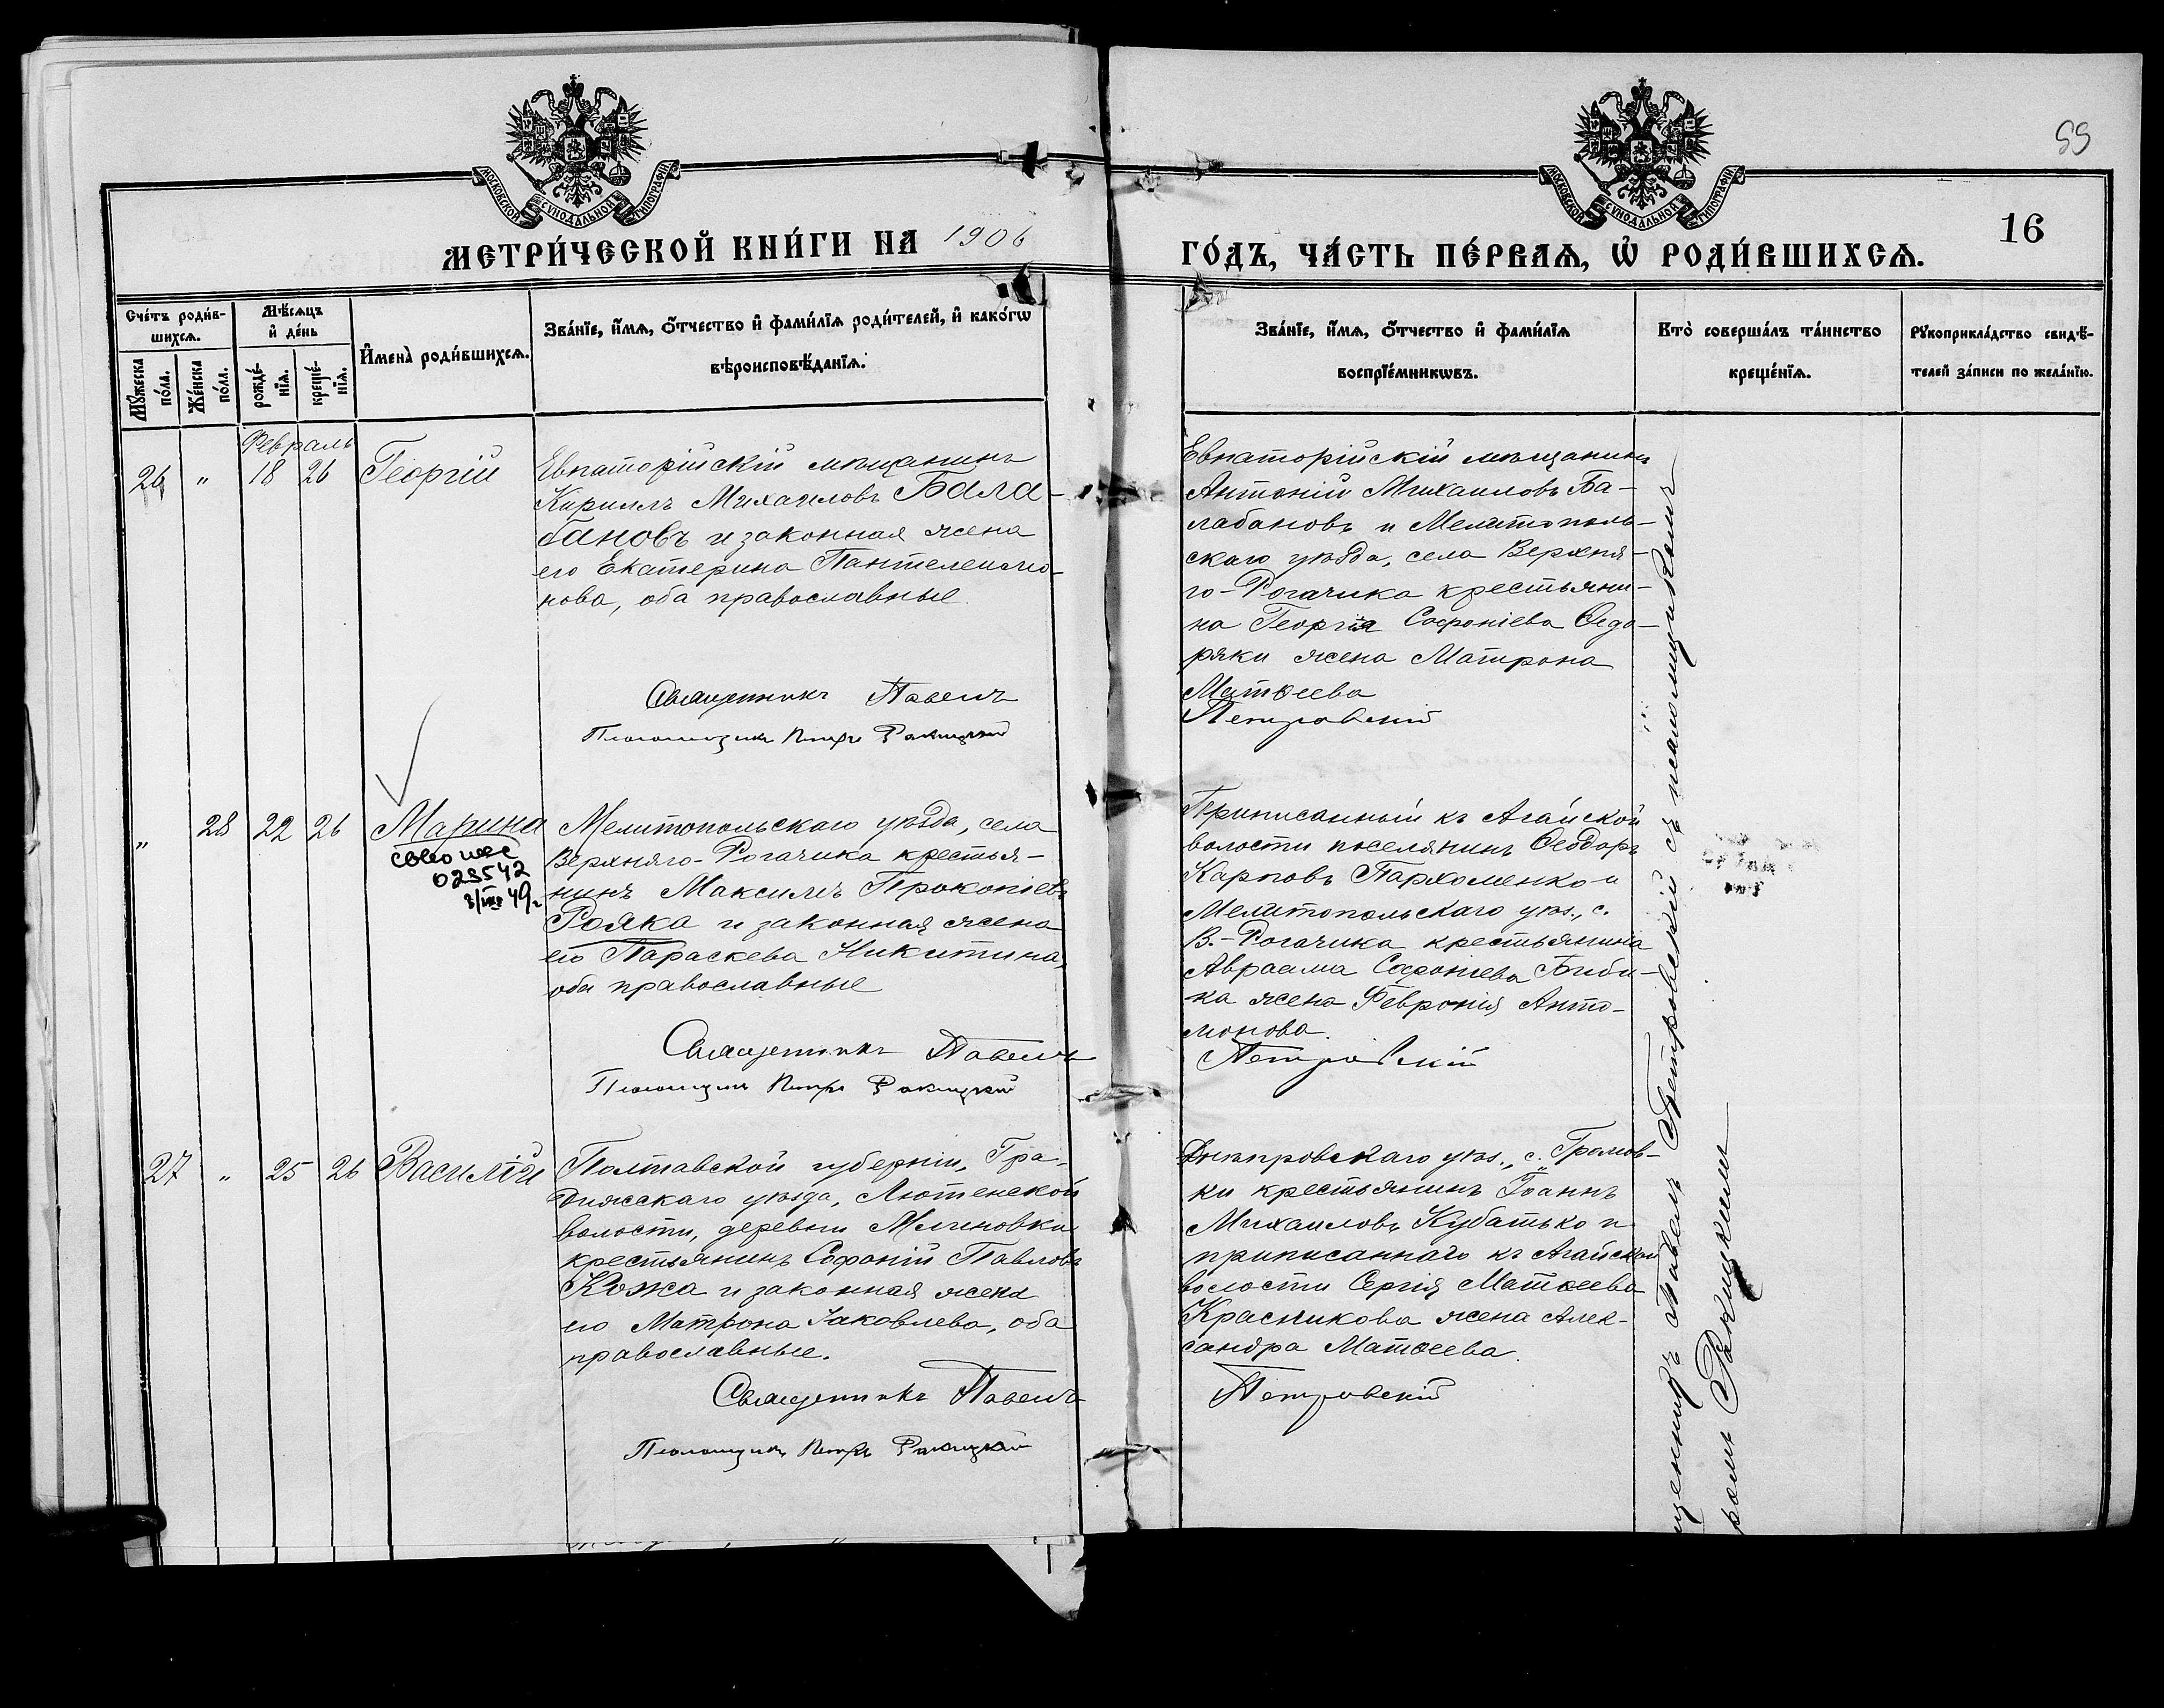 99
16
МОСКОВСКОЙ СѴНОДАЛЬНОЙ ТИПОГРАФІИ
МОСКОВСКОЙ СѴНОДАЛЬНОЙ ТИПОГРАФІИ
МЕТРИ́ЧЕСКОЙ КНИ́ГИ НА 1906
ГО́ДЪ, ЧА́СТЬ ПЕ́РВАѦ, Ѡ҆ РОДИ́ВШИХСѦ.
Сче́тъ роди́в-
шихсѧ.
Мѣ́сѧцъ
и҆ де́нь
Мꙋ́жеска
по́ла.
Же́нска
по́ла.
рожде́-
нїѧ.
креще́-
нїѧ.
И҆мена̀ роди́вшихсѧ.
Зва́нїе, и҆́мѧ, ѻ҆́тчество и҆ фами́лїѧ роди́телей, и҆ како́гѡ
вѣроисповѣ́данїѧ.
Зва́нїе, и҆́мѧ, ѻ҆́тчество и҆ фами́лїѧ
воспрїе́мникѡвъ.
Кто̀ соверша́лъ та́инство
креще́нїѧ.
Рꙋкоприкла́дство свидѣ́-
телей за́писи по жела́нїю.
Февраль
26 " 18 26 Георгій
Евпаторійскій мѣщанинъ
Кирилъ Михаиловъ Бала-
бановъ и законная жена
его Екатерина Пантелеимо-
нова, оба православные
Священникъ Павелъ
Псаломщикъ Петръ Ракицкій
Евпаторійскій мѣщанинъ
Антоній Михаиловъ Ба-
лабановъ и Мелитополь-
скаго уѣзда, села Верхня-
го-Рогачика крестьяни-
на Георгія Софоніева
ряки жена Матрона
Матѳеева
Петровскій
" 28 22 26 Марина
023542
3/III 49г.
Мелитопольскаго уѣзда, села
Верхняго-Рогачика крестья-
нинъ Максимъ Прокопіевъ
Рояка и законная жена
его Параскева Никитина,
оба православные
Священникъ Павелъ
Псаломщикъ Петръ Ракицкій
Приписанный къ Агайской
волости поселянинъ Ѳеодоръ
Карповъ Пархоменко и
Мелитопольскаго уѣз., с.
В.-Рогачика крестьянина
Авраама Софоніева Биби-
ка жена Февронія Анто-
монова.
Петровскій
27 " 25 26 Василій
Полтавской губерніи, Гра-
дижскаго уѣзда, Лютенской
волости, деревни Млиновки
крестьянинъ Софоній Павловъ
Кожа и законная жена
его Матрона Іаковлева, оба
православные.
Священникъ Павелъ
Псаломщикъ Петръ Ракицкій
Днѣпровскаго уѣз., с. Громов-
ки крестьянинъ Іоаннъ
Михаиловъ Кубатько и
приписаннаго къ Агайской
волости Сергія Матѳеева
Красникова жена Алек-
сандра Матѳеева.
Петровскій
щенникъ Павелъ Петровскій съ псаломщикомъ
ромъ Ракицкимъ